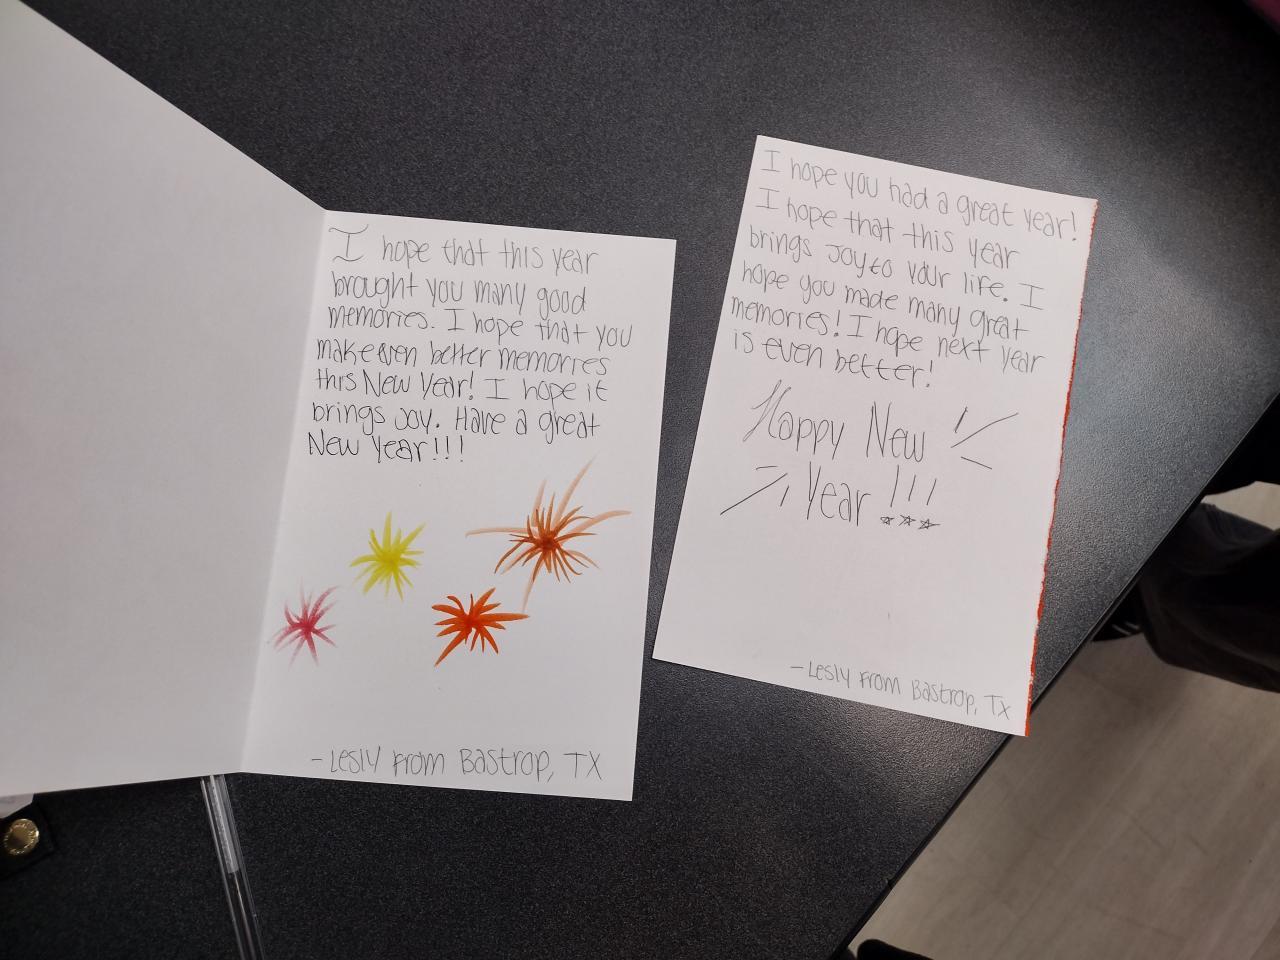 I hope that this year
brought you many good
memories. I hope that you
make even better memories
this New Year! I hope it
brings joy. Have a great
New Year!!!
-Lesly from Bastrop, TX
I hope you had a great year!
I hope that this year
brings joy to your life. I
hope you made many great
memories! I hope next year
is even better!
Happy New
Year!!!
-Lesly from Bastrop, TX